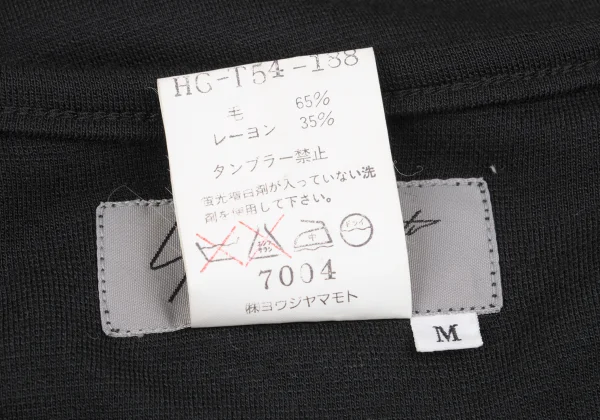 HG-T54-188
毛 65%
レーヨン 35%
タンブラー禁止
蛍光増白剤が入っていない洗
剤を使用して下さい。
エンソ
サラシ
中
ドライ
7004
㈱ヨウジヤマモト
M